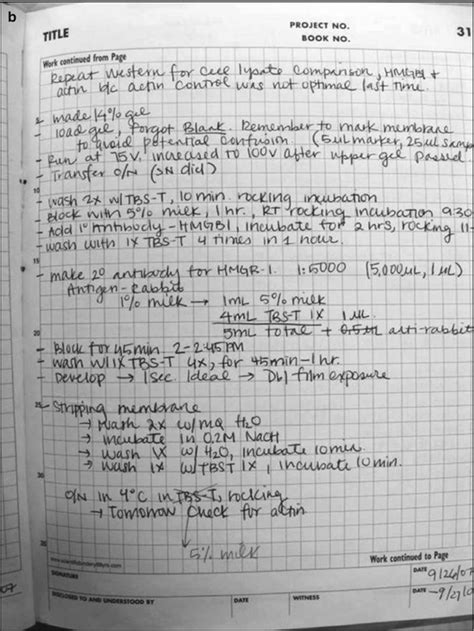 b
TITLE
PROJECT NO.
BOOK NO.
31
Work continued from Page
Repeat Western for cell lysate comparison, HMGB1 &
actin b/c actin control was not optimal last time.
- made 14% gel
- load gel, forgot Blank. Remember to mark membrane
to avoid potential confusion. (5uL marker, 25uL sample
- Run at 75V, increased to 100V after upper gel passed
- Transfer O/N (SN did)
10
- Wash 2x w/ TBS-T, 10 min. rocking incubation
- Block with 5% milk, 1 hr., RT rocking incubation 9:30
- Add 1° Antibody - HMGB1, incubate for 2 hrs, rocking 11-
- wash with 1X TBS-T 4 times in 1 hour.
15
- make 2° antibody for HMGB-1. 1:5000 (5,000uL, 1uL)
Antigen-Rabbit
1% milk → 1mL 5% milk
4mL TBS-T 1X 1uL
20
5mL total + 0.5uL anti-rabbit
- Block for 45min 2-2:45PM
- Wash w/1X TBS-T 4x, for 45min-1hr.
- Develop → 1sec. Ideal → film exposure
25
- Stripping membrane
→ Wash 2x w/mQ H2O
→ incubate in 0.2M NaOH
→ Wash 1X w/ H2O, incubate 10min.
→ Wash 1X w/ TBST 1X, incubate 10 min.
30
O/N in 4°C in TBS-T, rocking
→ Tomorrow check for actin
35
5% milk
Work continued to Page
SIGNATURE
DATE 9/26/07
DISCLOSED TO AND UNDERSTOOD BY
DATE
WITNESS
DATE
07